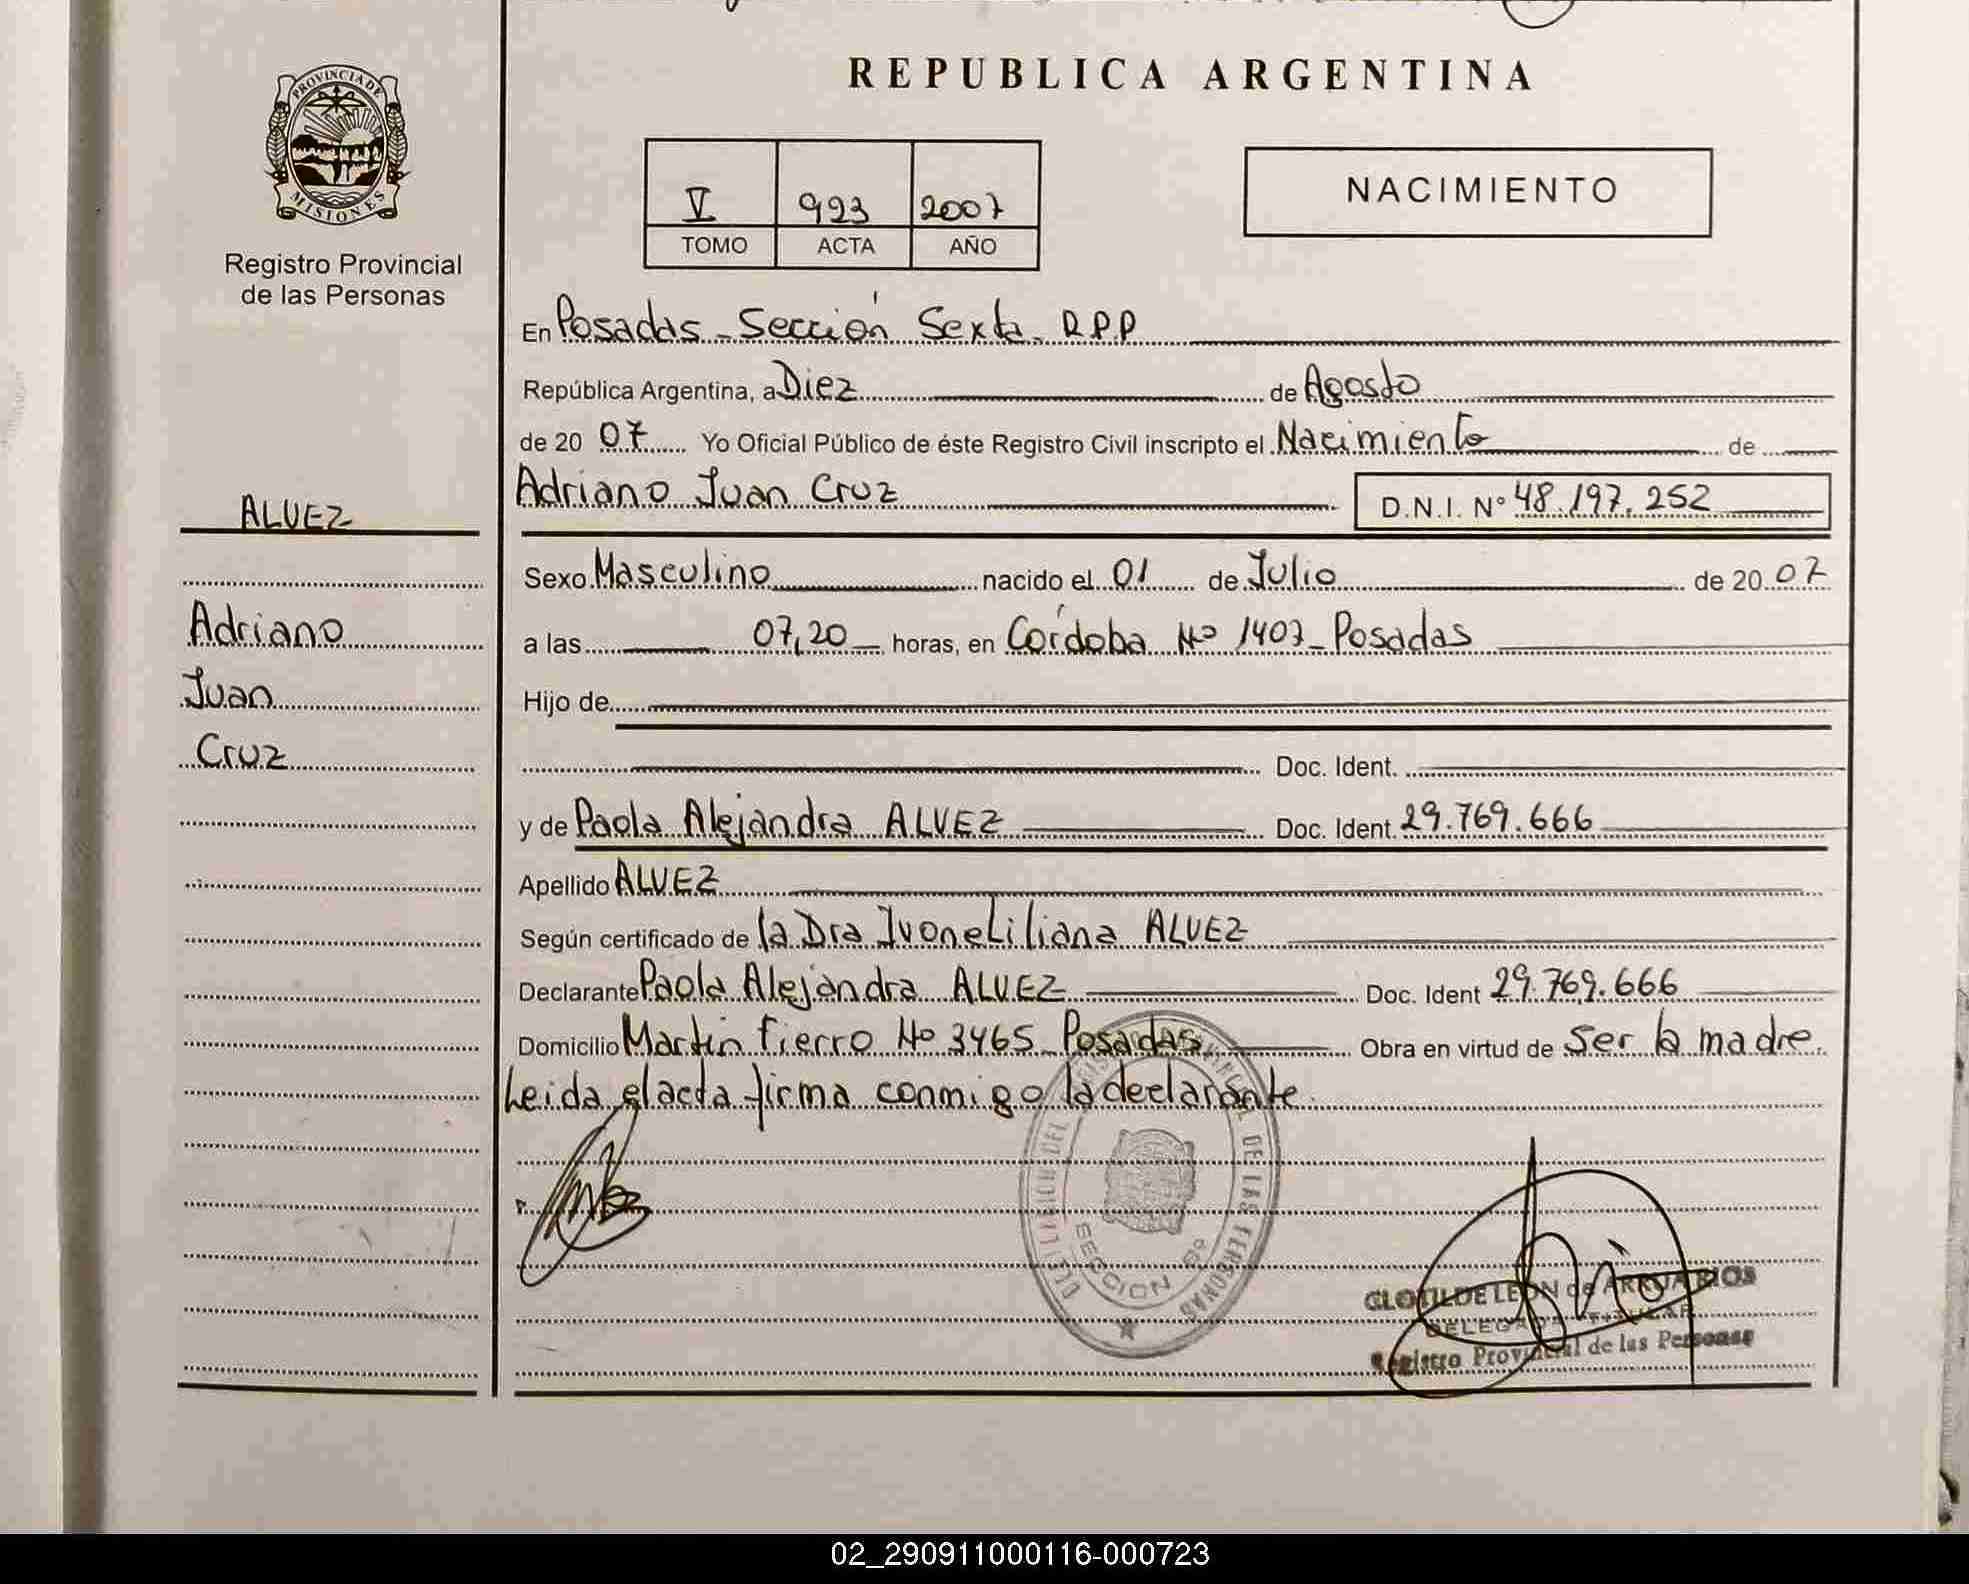 REPUBLICA ARGENTINA
PROVINCIA DE
MISIONES
Registro Provincial
de las Personas
V 923 2007
TOMO ACTA AÑO
NACIMIENTO
ALVEZ
Adriano
Juan
Cruz
En Posadas - Sección Sexta - R.P.P
República Argentina, a Diez de Agosto
de 20 07 Yo Oficial Público de éste Registro Civil inscripto el Nacimiento de
Adriano Juan Cruz D.N.I. Nº 48.197.252
Sexo Masculino nacido el 01 de Julio de 20 07
a las 07,20 horas, en Córdoba Nº 1407 - Posadas
Hijo de
Doc. Ident.
y de Paola Alejandra ALVEZ Doc. Ident. 29.769.666
Apellido ALVEZ
Según certificado de la Dra Ivone Liliana ALVEZ
Declarante Paola Alejandra ALVEZ Doc. Ident 29.769.666
Domicilio Martin Fierro Nº 3465 - Posadas Obra en virtud de Ser la madre
Leida el acta firma conmigo la declarante
DE LAS PERSONAS
SECCION 6º
CLOTILDE LEON de ARRUA RIOS
DELEGADA TITULAR
Registro Provincial de las Personas
02_290911000116-000723